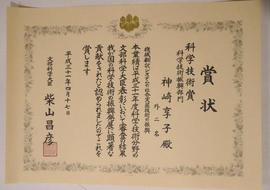 賞状
科学技術賞
科学技術振興部門
神崎享子殿
外二名
本業績は平成三十一年度科学技術分野の
文部科学大臣表彰において審査の結果
我が国の科学技術の振興発展に顕著な
貢献をされたと認められましたのでこれを
賞します
平成三十一年四月十七日
文部科学大臣
柴山昌彦